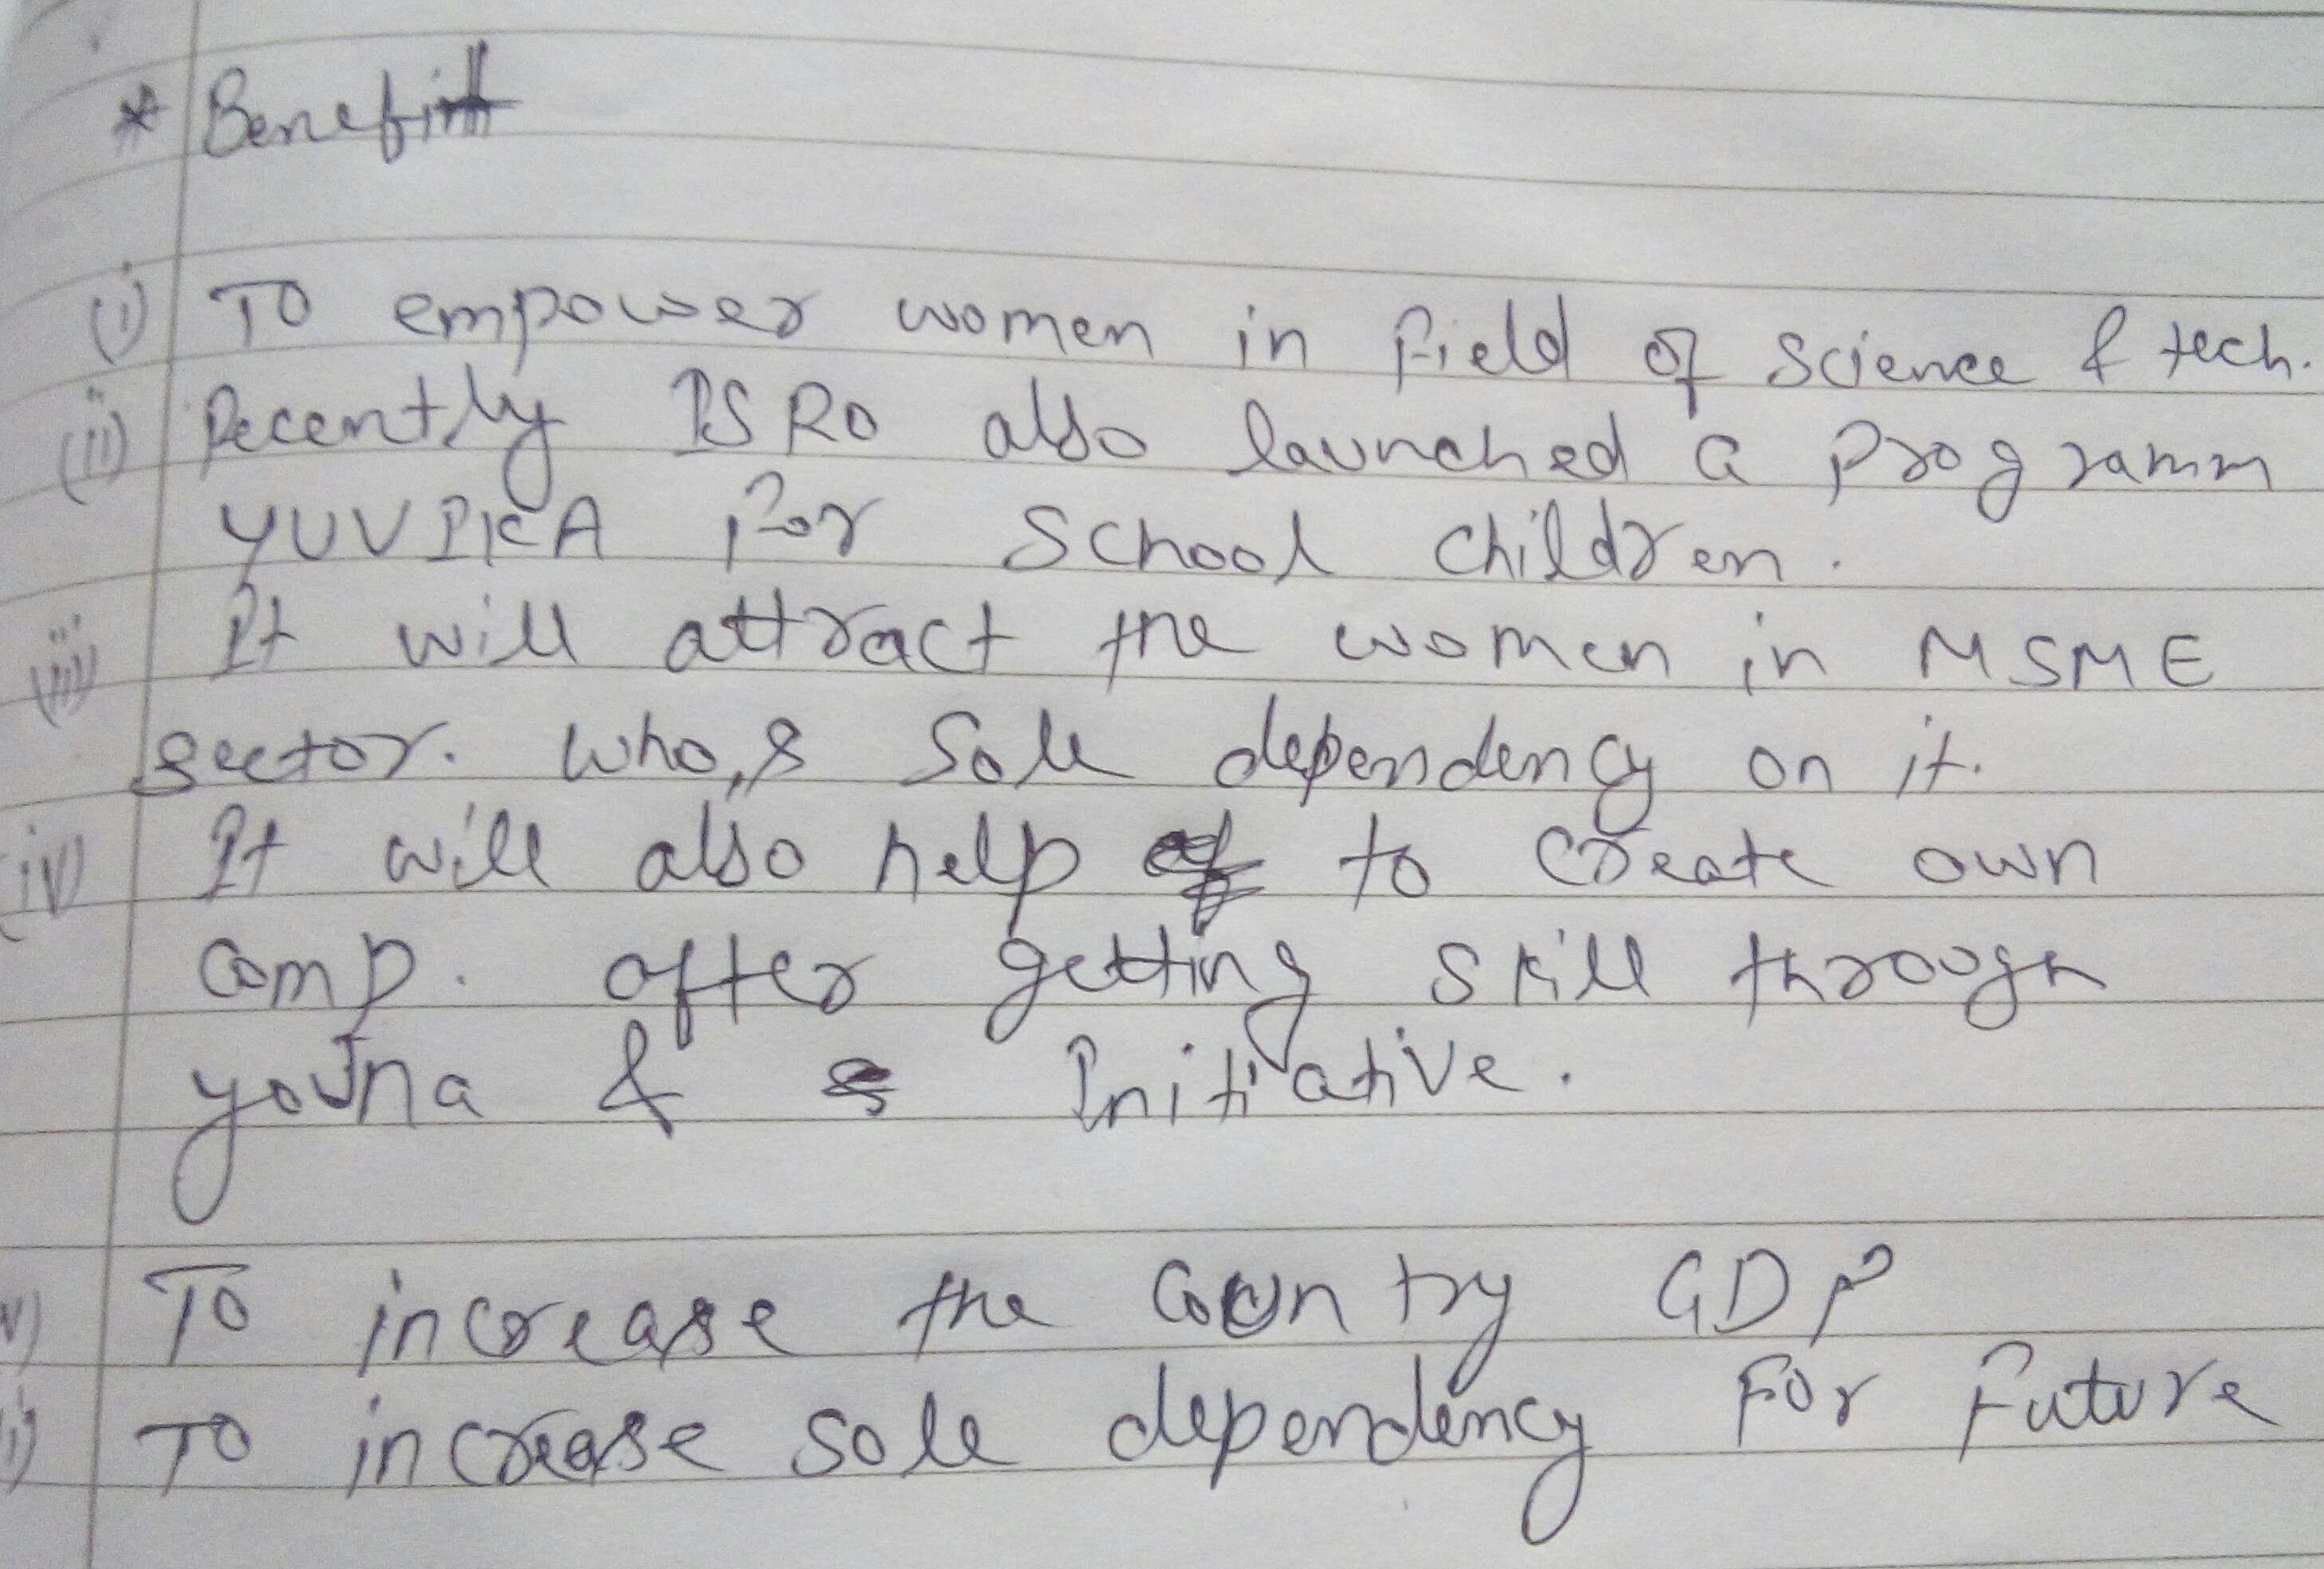 * Benefit
(i) TO empower women in field of Science & tech.
(ii) Recently ISRO also launched a programm
YUVIKA for School children.
(iii) It will attract the women in MSME
sector. who,s sole dependency on it.
(iv) It will also help to create own
comp. after getting skill through
yojna & Initiative.
v) To increase the country GDP
i) To increase sole dependency For Future